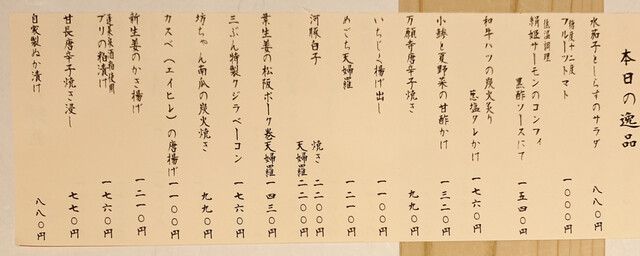 本日の逸品
水茄子としらすのサラダ 八八〇円
糖度十二度
フルーツトマト 一〇〇〇円
低温調理
絹姫サーモンのコンフィ
黒酢ソースにて 一五四〇円
和牛ハツの炭火炙り
葱塩タレかけ 一七六〇円
小鯵と夏野菜の甘酢かけ 一三二〇円
万願寺唐辛子焼き 九九〇円
いちじく揚げ出し 一一〇〇円
めごち天婦羅 一二一〇円
河豚白子 焼き 二二〇〇円
天婦羅 二二〇〇円
葉生姜の松阪ポーク巻天婦羅 一四三〇円
三ぶん特製クジラベーコン 一七六〇円
坊ちゃん南瓜の炭火焼き 九九〇円
カスベ(エイヒレ)の唐揚げ 一一〇〇円
新生姜のかき揚げ 一二一〇円
蓬莱泉酒粕使用
ブリの粕漬け 一七六〇円
甘長唐辛子焼き浸し 七七〇円
自家製ぬか漬け 八八〇円